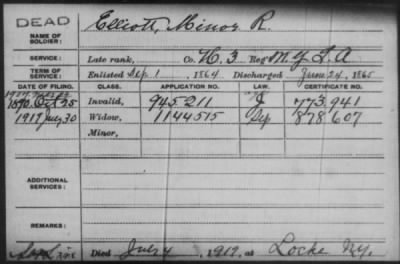 DEAD
NAME OF SOLDIER: Elliott, Minor R.
SERVICE: Late rank, Co. H. 3 Reg N.Y. L. A
TERM OF SERVICE: Enlisted Sep. 1, 1864 Discharged June 24, 1865
DATE OF FILING. CLASS. APPLICATION NO. LAW. CERTIFICATE NO.
1890 Oct 25 Invalid, 945211 773,941
1919 July 30 Widow, 1144515 878607
Minor,
ADDITIONAL SERVICES:
REMARKS:
Died July 4, 1919, at Locke N.Y.